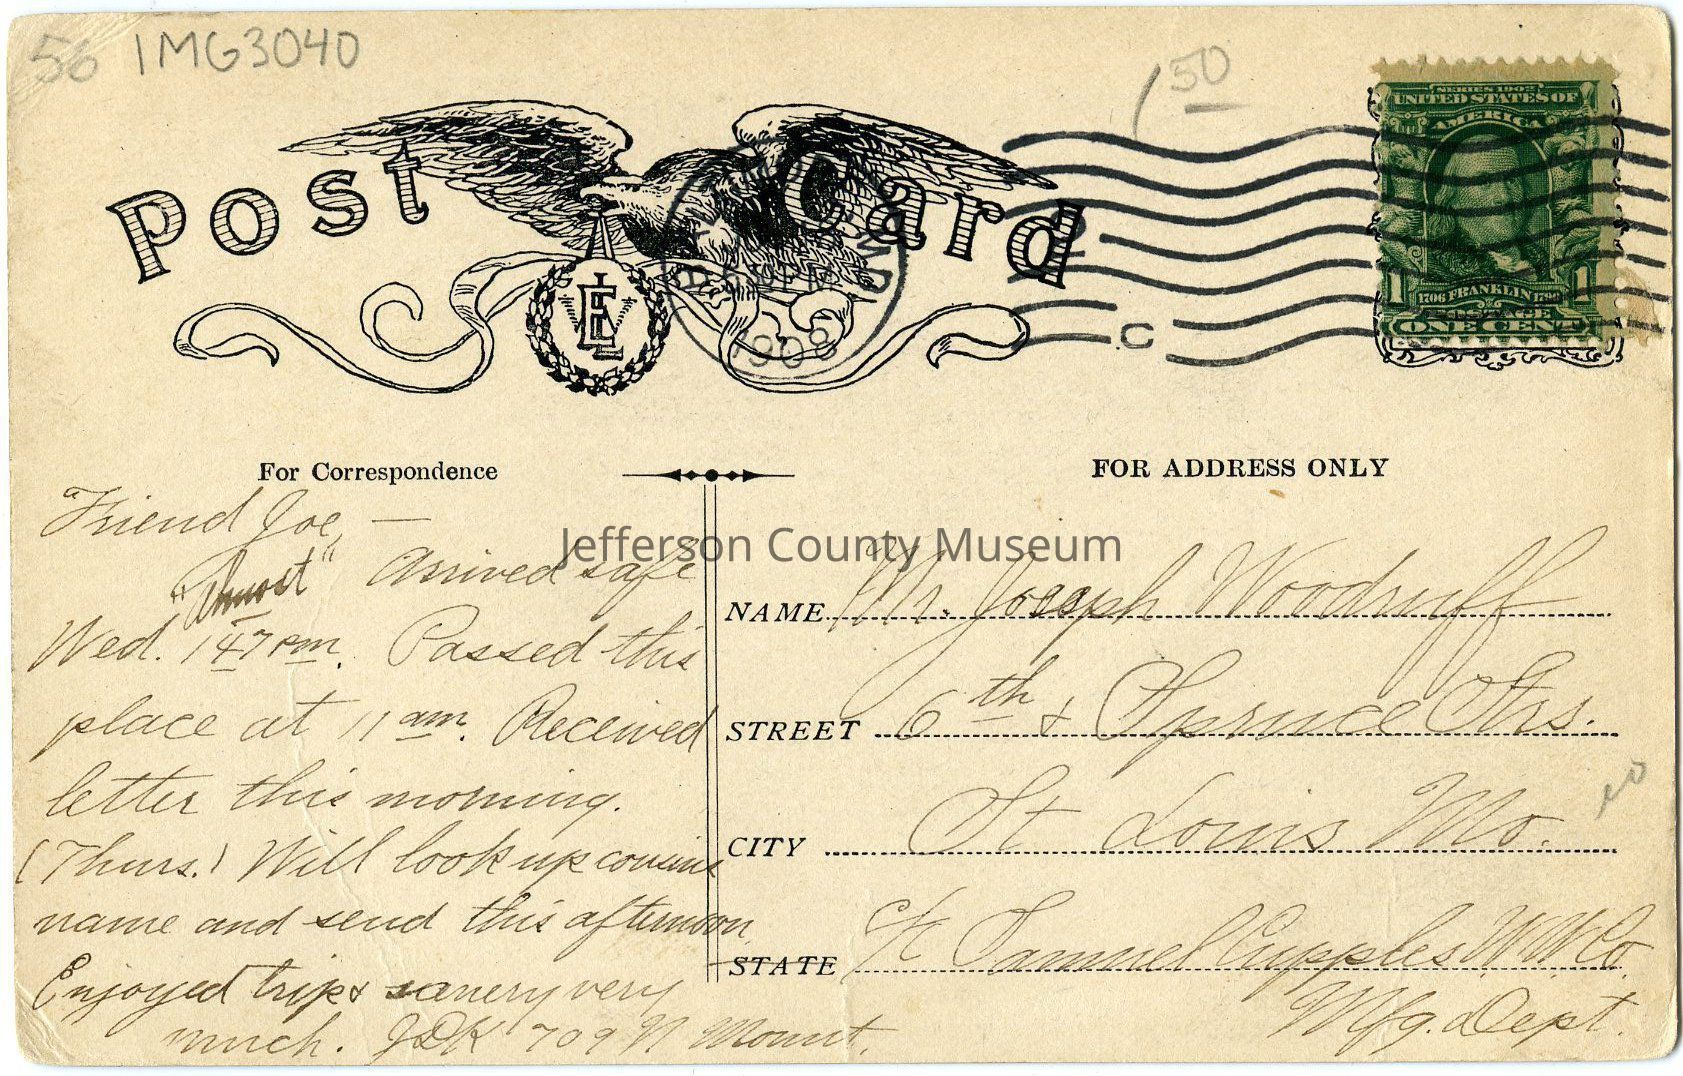 56 IMG3040
150
Post Card
SERIES 1902
UNITED STATES OF
AMERICA
1 1
1706 FRANKLIN 1790
POSTAGE
ONE CENT
1908
C
For Correspondence
FOR ADDRESS ONLY
Jefferson County Museum
Friend Joe, —
"Almost" Arrived safe
Wed. 147 pm. Passed this
place at 11 am. Received
letter this morning.
(Thurs.) Will look up cousins
name and send this afternoon
Enjoyed trip & scenery very
much. JDK 709 N. Mount.
NAME Mr. Joseph Woodruff
STREET 6th & Spruce Strs.
CITY St Louis Mo.
STATE c/o Samuel Cupples W.W. Co.
Mfg. Dept.